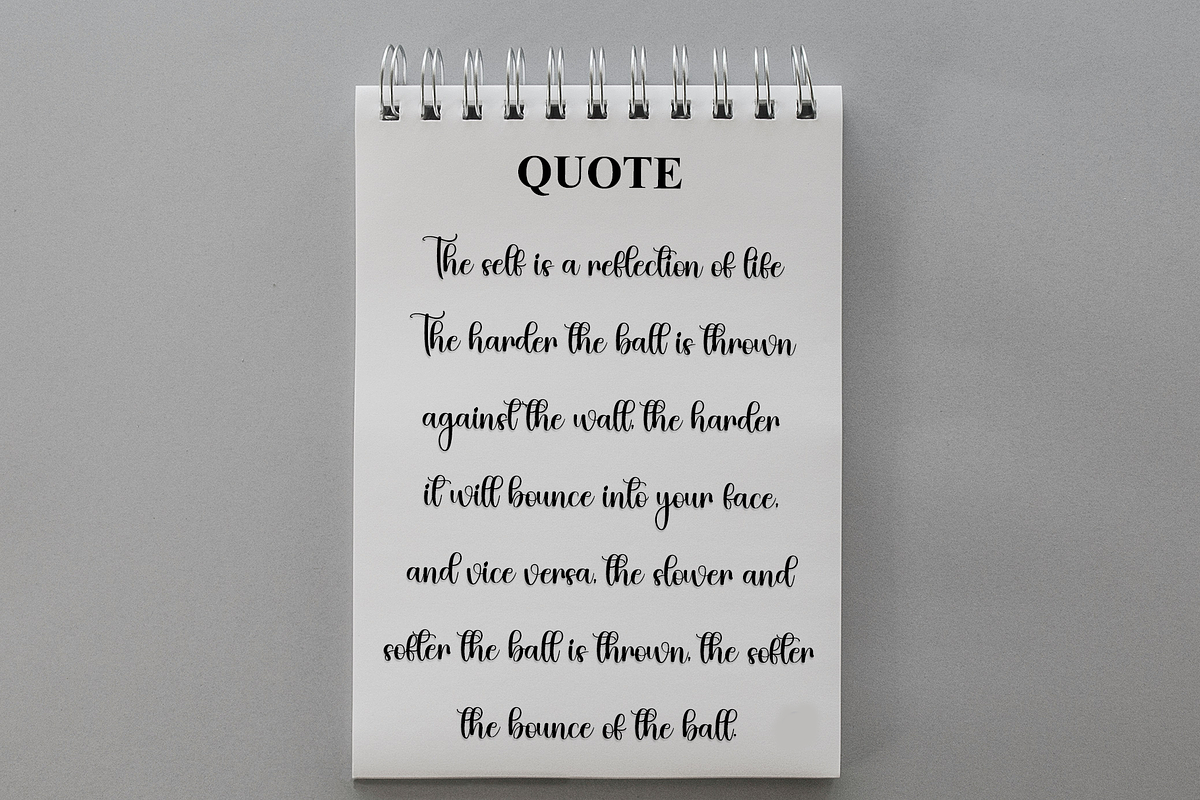 QUOTE
The self is a reflection of life
The harder the ball is thrown
against the wall, the harder
it will bounce into your face,
and vice versa, the slower and
softer the ball is thrown, the softer
the bounce of the ball.